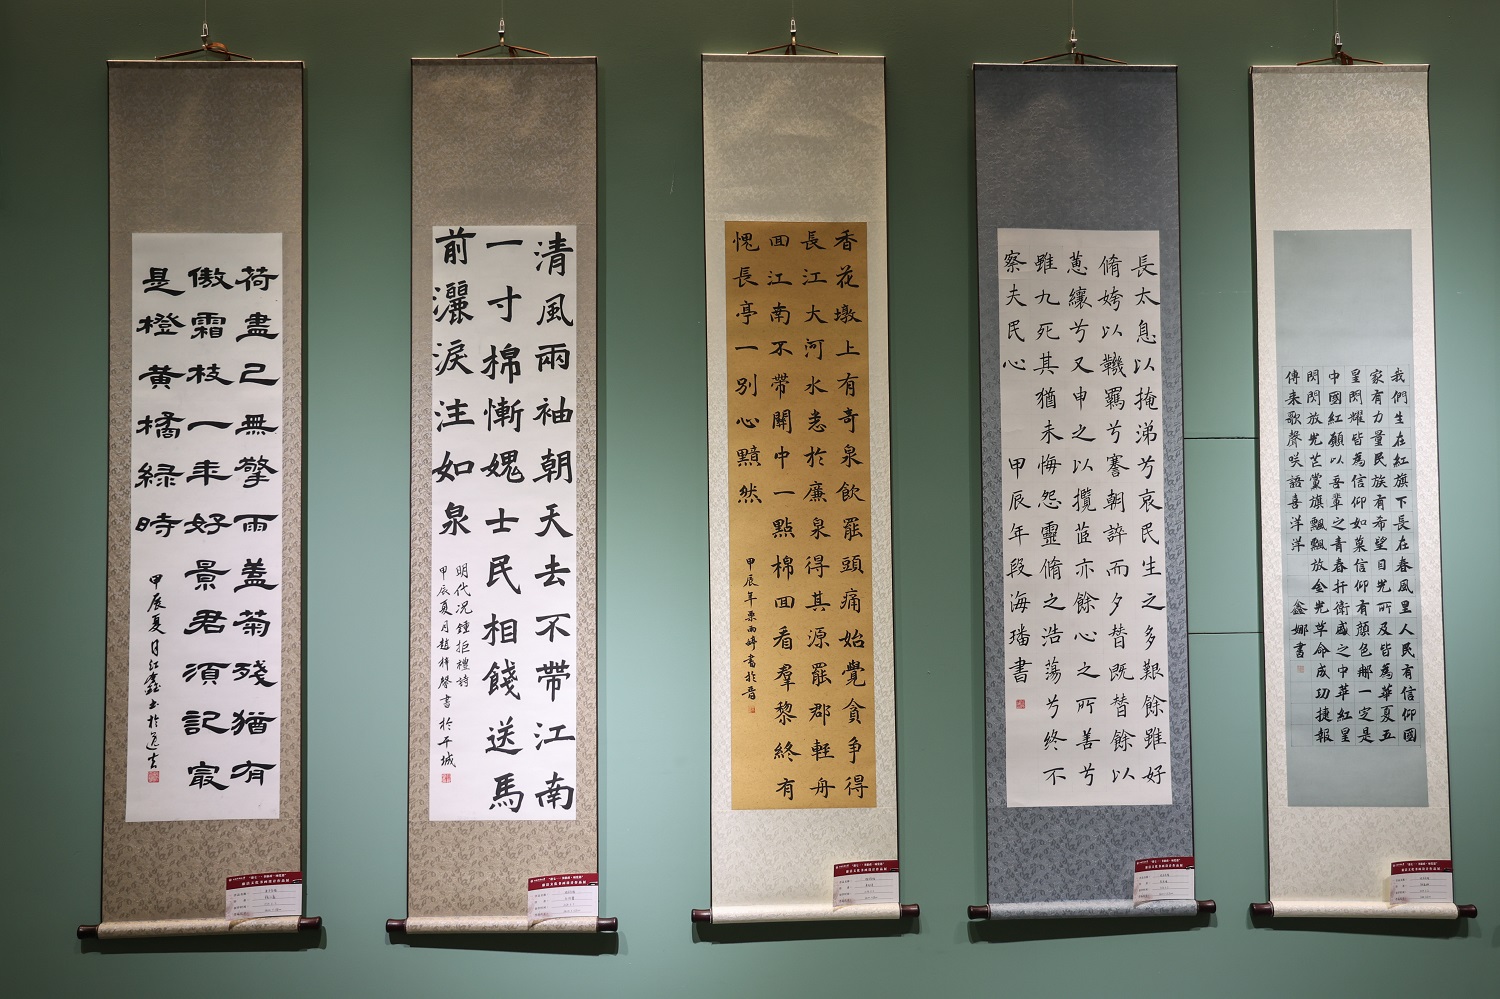 荷盡已無擎雨蓋菊殘猶有
傲霜枝一年好景君須記冣
是橙黃橘綠時
甲辰夏月江鑫書於
清風兩袖朝天去不帶江南
一寸棉慚媿士民相餞送馬
前灑淚注如泉
明代況鍾拒禮詩
甲辰夏月趙梓馨書於平城
香花墩上有奇泉飲罷頭痛始覺貪爭得
長江大河水恚於廉泉得其源罷郡輕舟
回江南不帶關中一點棉回看羣黎終有
愧長亭一別心黯然
甲辰年栗雨婷書於晉
長太息以掩涕兮哀民生之多艱餘雖好
脩姱以鞿羈兮謇朝誶而夕替既替餘以
蕙纕兮又申之以攬茝亦餘心之所善兮
雖九死其猶未悔怨靈脩之浩蕩兮終不
察夫民心 甲辰年段海璠書
我們生在紅旗下長在春風里人民有信仰國
家有力量民族有希望目光所及皆為華夏五
星閃耀皆為信仰如菓信仰有顏色那一定是
中國紅願以吾輩之青春扞衛盛之中華紅星
閃閃放光芒黨旗飄飄放金光革命成功捷報
傳來歌聲咲語喜洋洋 鑫娜書